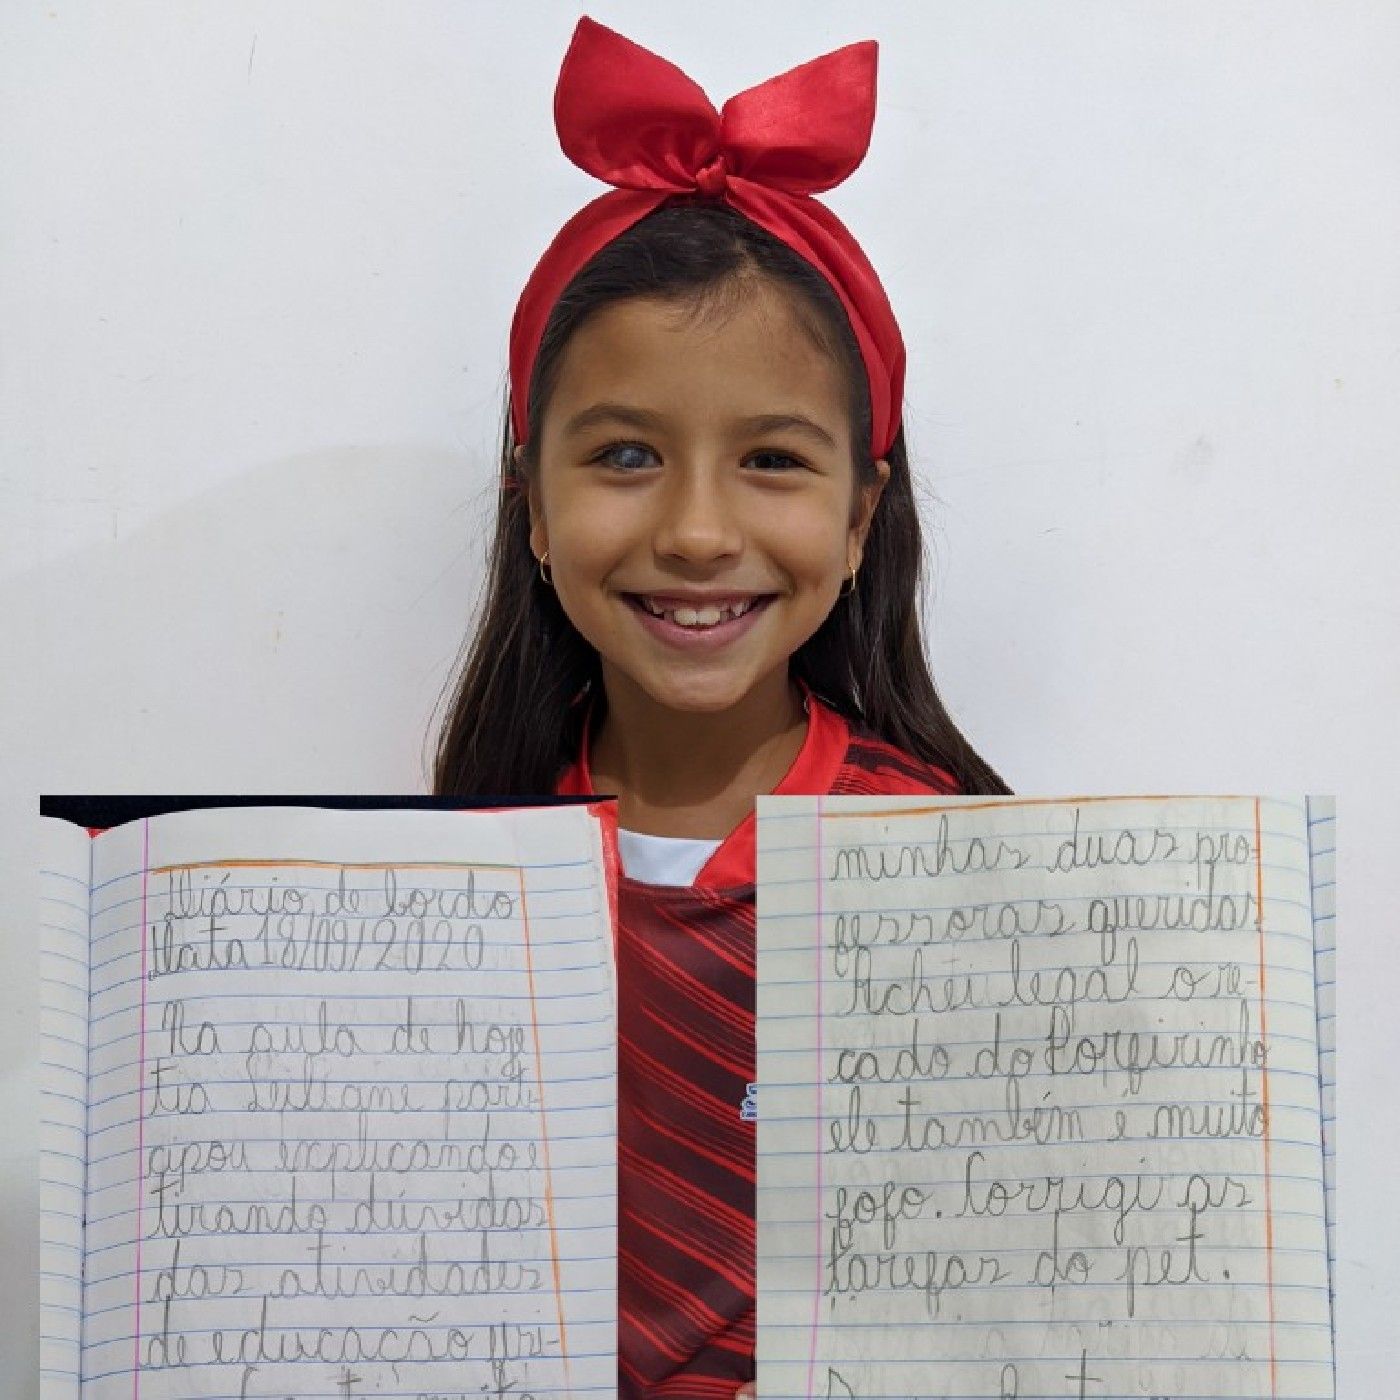 Diário de bordo
Data 18/09/2020
Na aula de hoje
tia Leiliane parti-
cipou explicando e
tirando dúvidas
das atividades
de educação físi-
muito
minhas duas pro-
fessoras queridas
Achei legal o re-
cado do Porfeirinho
ele também é muito
fofo. Corrigi as
tarefas do pet.